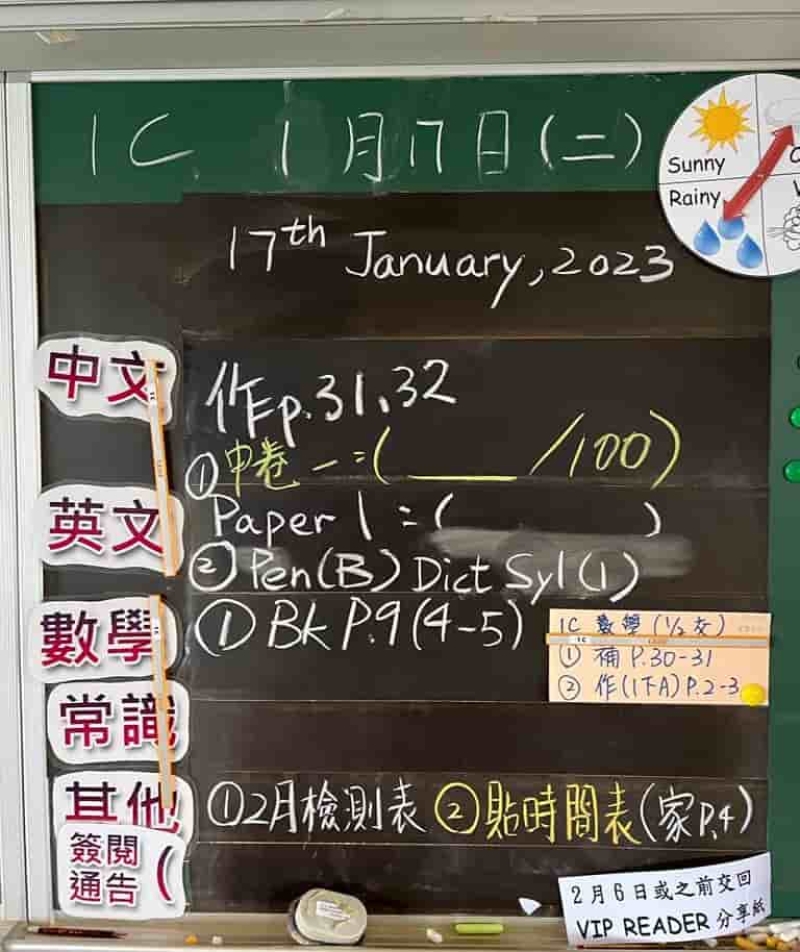 1C. 1月17日(二)
Sunny
Rainy
17th January, 2023
中文
作p.31、32
①中卷一:(____/100)
英文
Paper 1:( )
②Pen(B) Dict Syl(1)
數學
①Bk P.9(4-5)
1C 數學(1/2交)
① 補 P.30-31
② 作(1下A)P.2-3
常識
其他
①2月檢測表 ②貼時間表(家P.4)
簽閱
通告(
2月6日或之前交回
VIP READER 分享紙